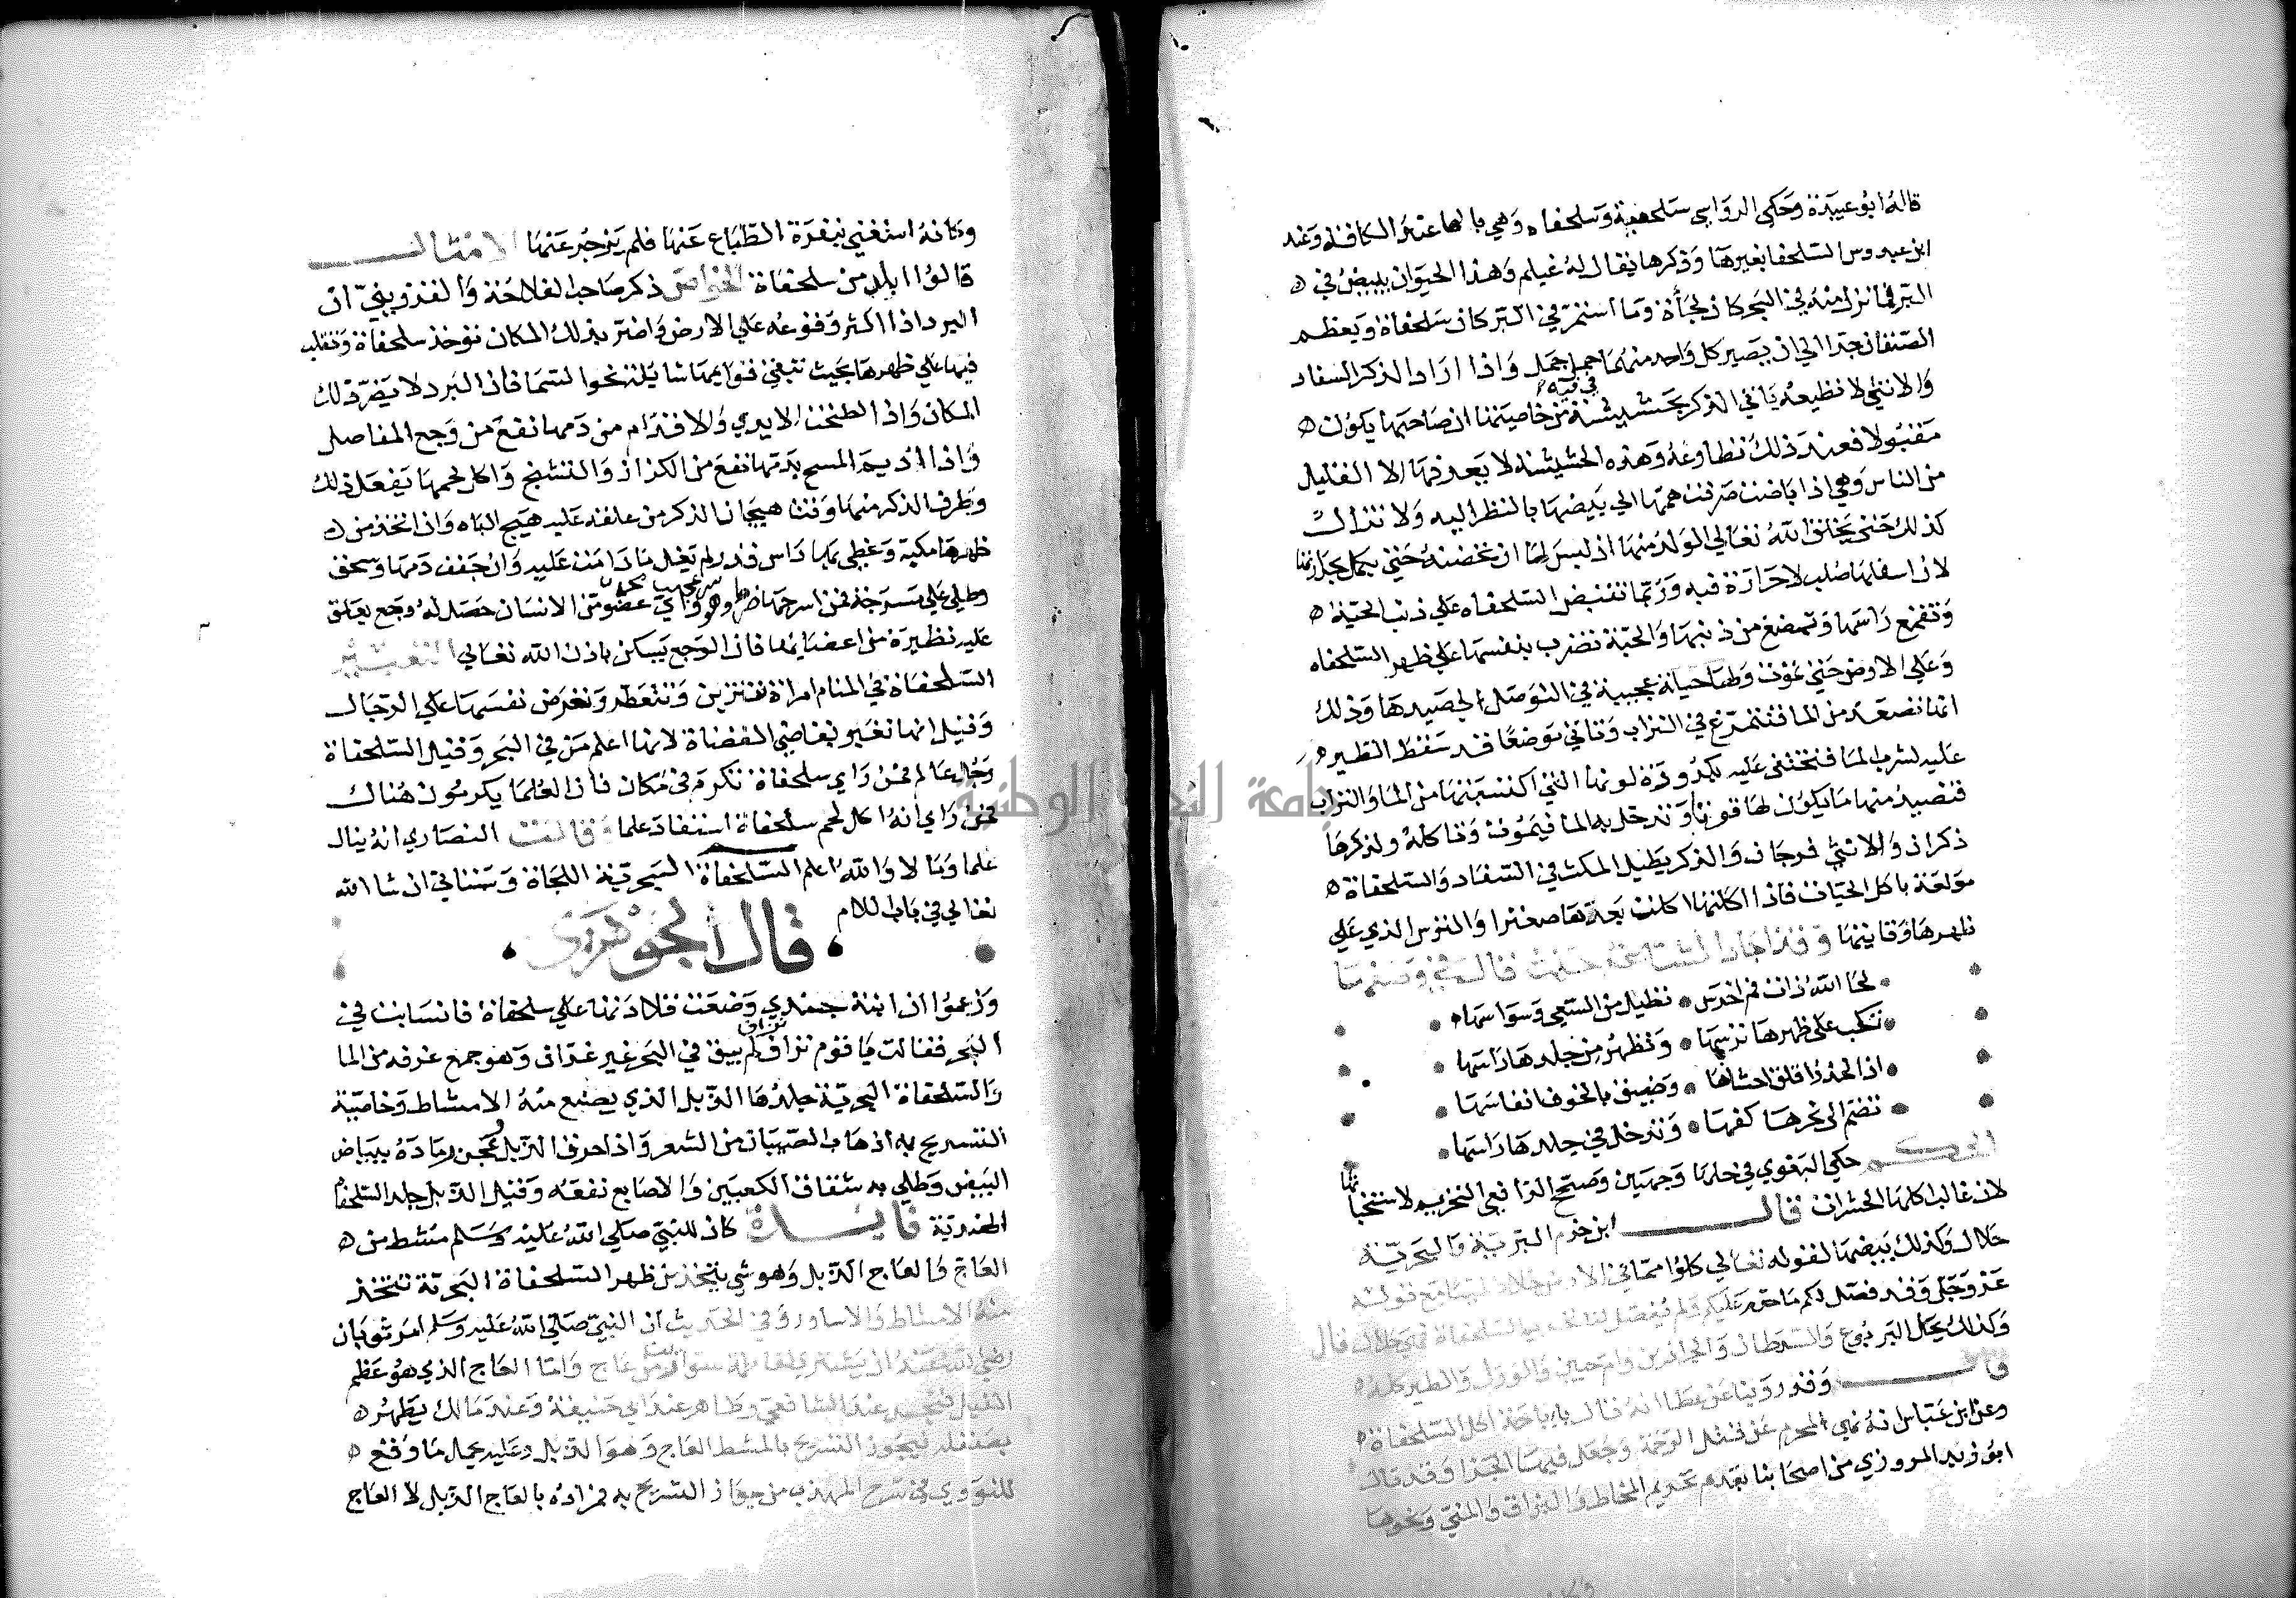 قاله ابو عبيدة وحكى الرواسي سلحفية وسلحفاه وهي بالها عند الكافة وعند
ابن عبدوس السلحفا بغيرها وذكرها يقال له غيلم وهذا الحيوان يبيض في
البر فما نزل منه في البحر كان لجأة وما استمر في البر كان سلحفاة ويعظم
الصنفان جدا الى ان يصير كل واحد منهما حمل جمل واذا اراد الذكر السفاد
والانثى لا تطيعه ياتي الذكر بحشيشة في فيه من خاصيتها ان صاحبها يكون
مقبولا فعند ذلك تطاوعه وهذه الحشيشة لا يعرفها الا القليل
من الناس وهي اذا باضت صرفت همتها الى بيضها بالنظر اليه ولا تزال
كذلك حتى يخلق الله تعالى الولد منها اذ ليس لها ان تحضنه حتى يكمل بحرارتها
لان اسفلها صلب لا حرارة فيه وربما تقبض السلحفاه على ذنب الحية
وتقمع راسها وتمضغ من ذنبها والحية تضرب بنفسها على ظهر السلحفاه
وعلى الارض حتى تموت ولها حيلة عجيبة في التوصل الى صيدها وذلك
انها تصعد من الما فتتمرغ في التراب وتاتي موضعا قد سقط الطير
عليه لشرب الما فتختفي عليه بكدورة لونها التي اكتسبتها من الما والتراب
فتصيد منها ما يكون لها قوتا وتدخل به الما فيموت وتاكله ولذكرها
ذكران وللانثى فرجان والذكر يطيل المكث في السفاد والسلحفاة
مولعة باكل الحيات فاذا اكلتها اكلت بعدها صعترا والترس الذي على
ظهرها وقايتها وقد اجاد الشاعر حيث قال في وصفها
لحا الله ذات فم اخرس • تطيل من السعي وسواسها
تكب على ظهرها ترسها • وتظهر من جلدها راسها
اذا الحذر اقلق احشاها • وضيق بالخوف انفاسها
تضم الى نحرها كفها • وتدخل في جلدها راسها
الحكم حكى البغوي في حلها وجهين وصحح الرافعي التحريم لاستخباثها
لان غالب اكلها الحشرات قال ابن حزم البرية والبحرية
حلال وكذلك بيضها لقوله تعالى كلوا مما في الارض حلالا طيبا مع قوله
عز وجل وقد فصل لكم ما حرم عليكم ولم يفصل لنا تحريم السلحفاة فهي حلال قال
وكذلك يحل اليربوع والسرطان والجراذين وام حبين والورل والطير كله
قال وقد روينا عن عطا انه قال باباحة اكل السلحفاة
وعن ابن عباس انه نهى المحرم عن قتل الرخمة وجعل فيها الجزا وقد قال
ابو زيد المروزي من اصحابنا بعدم تحريم المخاط والبزاق والمني ونحوها
وكانه استغني بنفرة الطباع عنها فلم يزجر عنها الامثال
قالوا ابلد من سلحفاة الخواص ذكر صاحب الفلاحة والقزويني ان
البرد اذا اكثر وقوعه على الارض واضر بذلك المكان تؤخذ سلحفاة وتقلب
فيها على ظهرها بحيث تبقى قوايمها شايلة نحو السما فان البرد لا يضر ذلك
المكان واذا لطخت الايدي والاقدام من دمها نفع من وجع المفاصل
واذا اديم المسح بدمها نفع من الكزاز والتشنج واكل لحمها يفعل ذلك
وطرف الذكر منها وقت هيجانه الذكر من علقه عليه هيج الباه واذا اتخذ من
ظهرها مكبة وغطي بها راس قدر لم يغل ما دامت عليه وان جفف دمها وسحق
وطلي على مسرجة فمن اسرجها ضرط وهو سر عجيب مجرب واي عضو من الانسان حصل له وجع يعلق
عليه نظيره من اعضايها فان الوجع يسكن باذن الله تعالى التعبير
السلحفاة في المنام امراة تتزين وتتعطر وتعرض نفسها على الرجال
وقيل انها تعبر بقاضي القضاة لانها اعلم من في البحر وقيل السلحفاة
رجل عالم فمن راى سلحفاة تكرم في مكان فان العلما يكرمون هناك
فمن راى انه اكل لحم سلحفاة استفاد علما وقالت النصارى انه ينال
علما ومالا والله اعلم السلحفاة البحرية اللجاة وستاتي ان شا الله
تعالى في باب اللام
قال الجوهري
وزعموا ان ابنة جندي وضعت قلادتها على سلحفاة فانسابت في
البحر فقالت يا قوم نزاف نزاف لم يبق في البحر غير غراف وهو جمع غرفه من الما
والسلحفاة البحرية جلدها الذبل الذي يصنع منه الامشاط وخاصية
التسريح به اذهاب الصيبان من الشعر واذا احرق الذبل وعجن رماده ببياض
البيض وطلي به شقاق الكعبين والاصابع نفعه وقيل الذبل جلد السلحفاة
الهندية فايدة كان للنبي صلى الله عليه وسلم مشط من
العاج والعاج الذبل وهو شي يتخذ من ظهر السلحفاة البحرية تتخذ
منه الامشاط والاساور وفي الحديث ان النبي صلى الله عليه وسلم امر ثوبان
رضي الله عنه ان يشتري لفاطمة سوارين من عاج واما العاج الذي هو عظم
الفيل فنجس عند الشافعي وطاهر عند ابي حنيفة وعند مالك يطهر
بصقله فيجوز التسريح بالمشط العاج وهو الذبل وعليه يحمل ما وقع
للنووي في شرح المهذب من جواز التسريح به فمراده بالعاج الذبل لا العاج
جامعة النجاح الوطنية